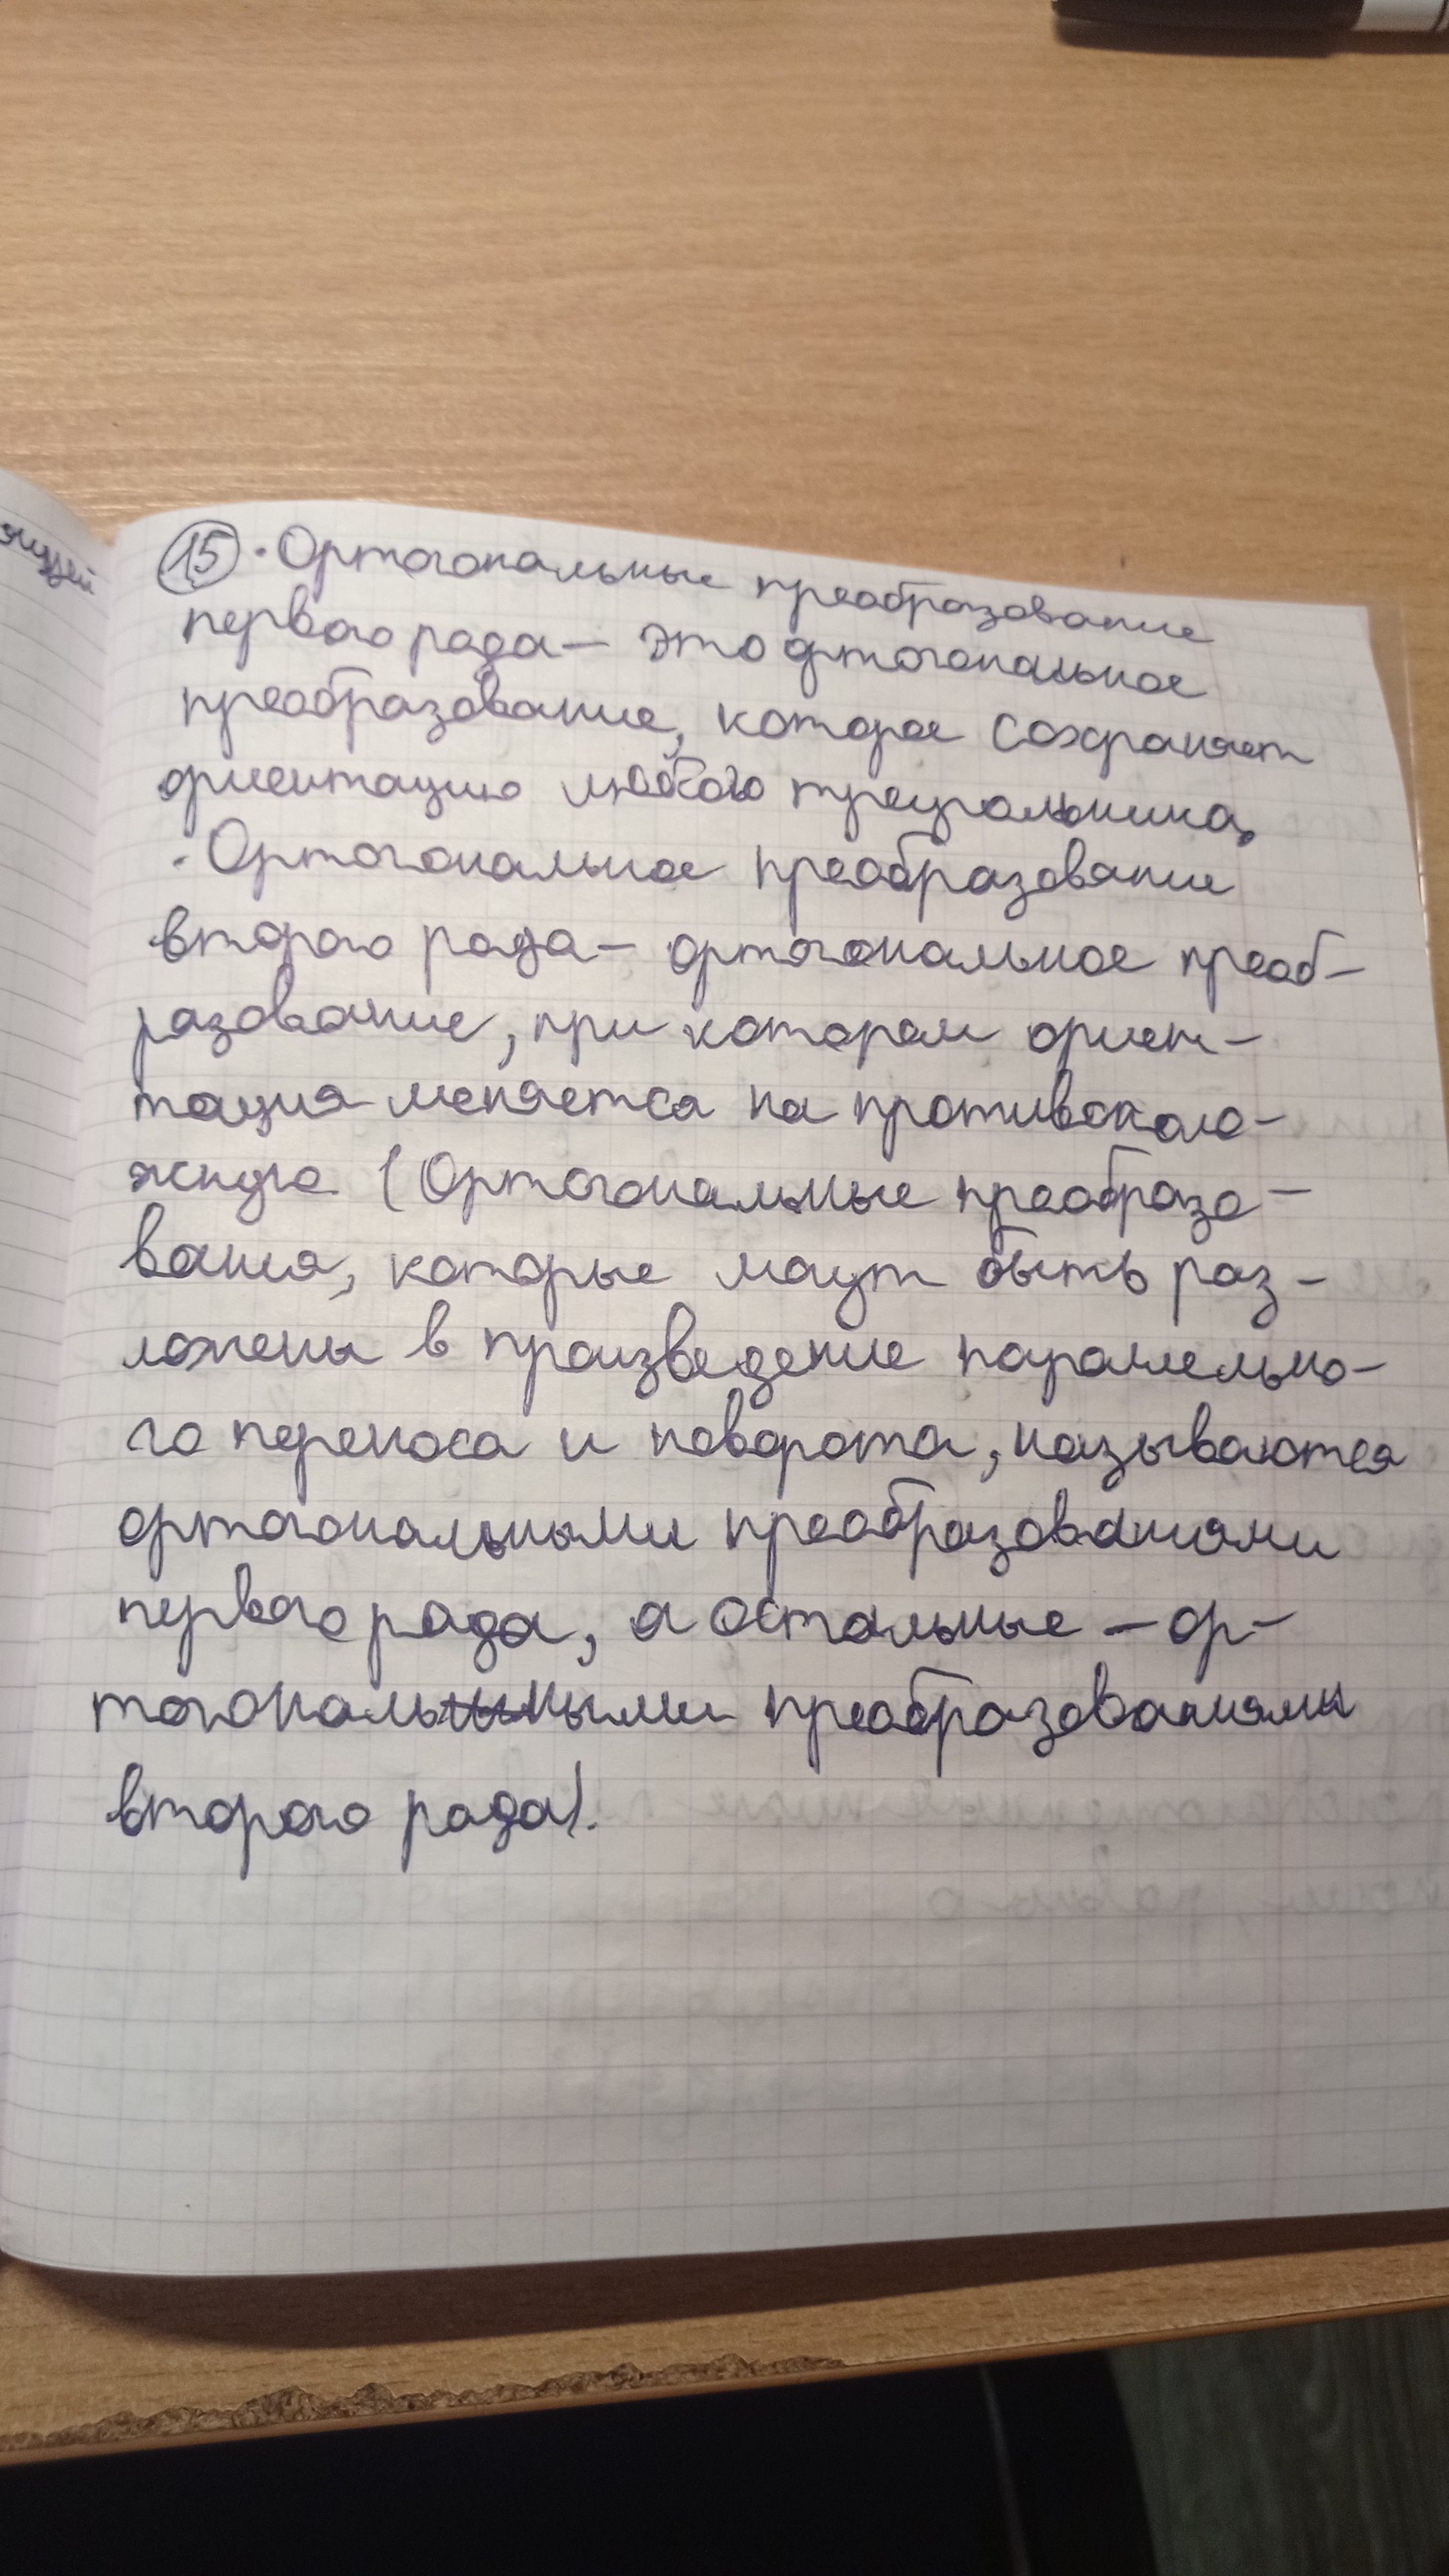 15 · Ортогональные преобразование
первого рода – это ортогональное
преобразование, которое сохраняет
ориентацию любого треугольника.
· Ортогональное преобразование
второго рода – ортогональное преоб-
разование, при котором ориен-
тация меняется на противополо-
жную (Ортогональные преобразо-
вания, которые могут быть раз-
ложены в произведение параллельно-
го переноса и поворота, называются
ортогональными преобразованиями
первого рода, а остальные – ор-
тогональными преобразованиями
второго рода).